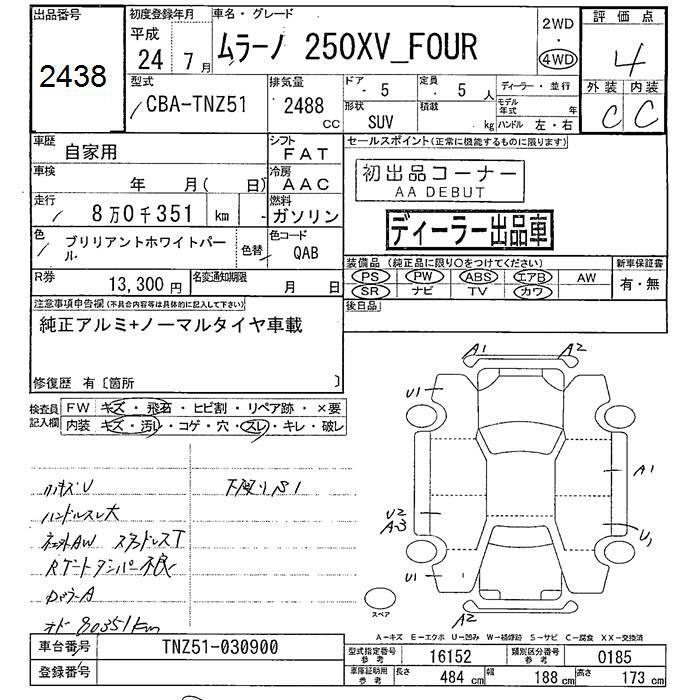 出品番号
2438
初度登録年月
平成
24 7月
車名・グレード
ムラーノ 250XV_FOUR
2WD
・
4WD
評価点
4
外装 内装
C C
型式
CBA-TNZ51
排気量
2488
CC
ドア
・ 5
定員
・ 5 人
形状
SUV
積載
kg
ディーラー・並行
モデル年式 年
ハンドル 左・右
車歴
自家用
シフト
FAT
車検
年 月( 日)
冷房
AAC
走行
8万0千351 km
燃料
ガソリン
色
ブリリアントホワイトパール
色替
色コード
QAB
R券
13,300円
名変通知期限
月 日
セールスポイント(正常に機能するものに限ります)
初出品コーナー
AA DEBUT
ディーラー出品車
装備品(純正品に限り○をつけてください)
PS PW ABS エアB AW
SR ナビ TV カワ
新車保証書
有・無
後日品
注意事項申告欄(不具合内容等は具体的に記入して下さい)
純正アルミ+ノーマルタイヤ車載
修復歴 有〔箇所 〕
検査員記入欄
FW キズ・飛石・ヒビ割・リペア跡・×要
内装 キズ・汚レ・コゲ・穴・スレ・キレ・破レ
ハンドルスレ大
社外AW スタッドレスT
Rゲートダンパー不良
オドー80351km
A1 A2
U1
A1
U2
A3
U1
U1
A2
スペア
A-キズ E-エクボ U-凹み W-補修跡 S-サビ C-腐食 XX-交換済
車台番号
TNZ51-030900
登録番号
型式指定番号 参考
16152
類別区分番号 参考
0185
車庫証明用 参考
長さ 484 cm 幅 188 cm 高さ 173 cm